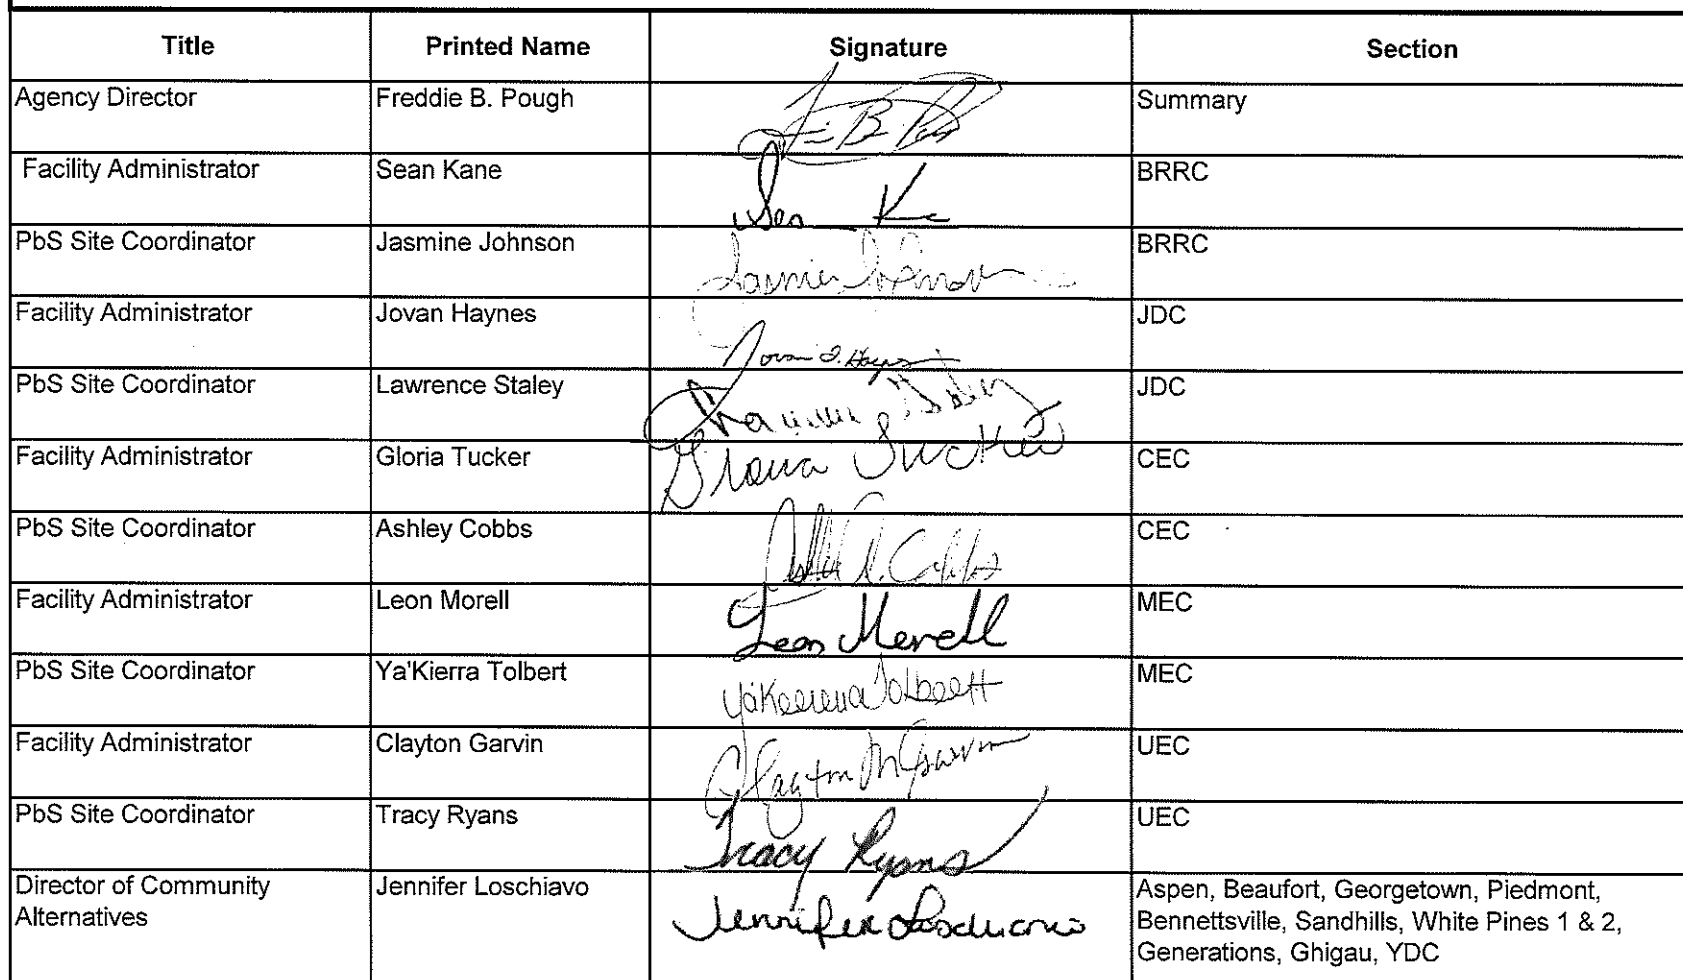 Title Printed Name Signature Section
Agency Director Freddie B. Pough Summary
Facility Administrator Sean Kane Sean K BRRC
PbS Site Coordinator Jasmine Johnson BRRC
Facility Administrator Jovan Haynes Jovan J. Haynes JDC
PbS Site Coordinator Lawrence Staley Lawrence Staley JDC
Facility Administrator Gloria Tucker Gloria Tucker CEC
PbS Site Coordinator Ashley Cobbs CEC
Facility Administrator Leon Morell Leon Morell MEC
PbS Site Coordinator Ya'Kierra Tolbert Ya'Kierra Tolbert MEC
Facility Administrator Clayton Garvin Clayton M Garvin UEC
PbS Site Coordinator Tracy Ryans Tracy Ryans UEC
Director of Community Jennifer Loschiavo Jennifer Loschiavo Aspen, Beaufort, Georgetown, Piedmont,
Alternatives Bennettsville, Sandhills, White Pines 1 & 2,
Generations, Ghigau, YDC